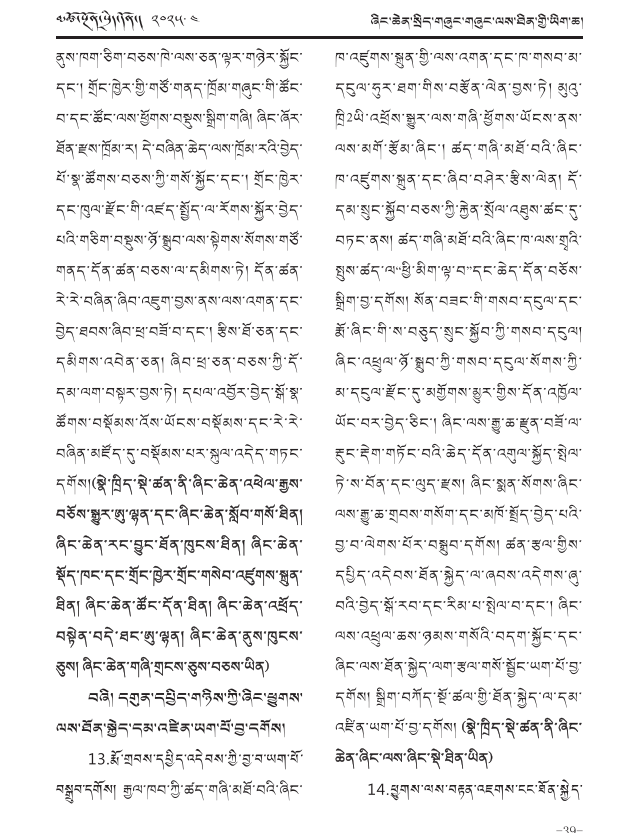 མཚོ་སྔོན་སྲིད་གཞུང་། ༢༠༢༥·༤
ཞིང་ཆེན་སྲིད་གཞུང་གཞུང་ལས་ཐིན་གྱི་ཡིག་ཆ།
ནུས་ཁག་ཅིག་བཅས་ཁེ་ལས་ཅན་ལྟར་གཉེར་སྐྱོང་
དང་། གྲོང་ཁྱེར་གྱི་གཙོ་གནད་ཁྲོམ་གཞུང་གི་ཚོང་
བ་དང་ཚོང་ལས་ཕྱོགས་བསྡུས་སྒྲིག་གཞི། ཞིང་ཞོར་
ཐོན་རྫས་ཁྲོམ་ར། དེ་བཞིན་ཆེད་ལས་ཁྲོམ་རའི་བྱེད་
པོ་སྣ་ཚོགས་བཅས་ཀྱི་གསོ་སྐྱོང་དང་། གྲོང་ཁྱེར་
དང་ཁུལ་རྫོང་གི་འཛད་སྤྱོད་ལ་རོགས་སྐྱོར་བྱེད་
པའི་གཅིག་བསྡུས་ཉོ་སྒྲུབ་ལས་སྟེགས་སོགས་གཙོ་
གནད་དོན་ཚན་བཅས་ལ་དམིགས་ཏེ། དོན་ཚན་
རེ་རེ་བཞིན་ཞིབ་འཇུག་བྱས་ནས་ལས་འགན་དང་
བྱེད་ཐབས་ཞིབ་ཕྲ་བཟོ་བ་དང་། རྩིས་ཐོ་ཅན་དང་
དམིགས་འབེན་ཅན། ཞིབ་ཕྲ་ཅན་བཅས་ཀྱི་དོ་
དམ་ལག་བསྟར་བྱས་ཏེ། དཔལ་འབྱོར་བྱེད་སྒོ་སྣ་
ཚོགས་བསྡོམས་འོས་ཡོངས་བསྡོམས་དང་རེ་རེ་
བཞིན་མཛོད་དུ་བསྡོམས་པར་སྐུལ་འདེད་གཏང་
དགོས།(སྣེ་ཁྲིད་སྡེ་ཚན་ནི་ཞིང་ཆེན་འཕེལ་རྒྱས་
བཅོས་སྒྱུར་ཨུ་ལྷན་དང་ཞིང་ཆེན་སློབ་གསོ་ཐིན།
ཞིང་ཆེན་རང་བྱུང་ཐོན་ཁུངས་ཐིན། ཞིང་ཆེན་
སྡོད་ཁང་དང་གྲོང་ཁྱེར་གྲོང་གསེབ་འཛུགས་སྐྲུན་
ཐིན། ཞིང་ཆེན་ཚོང་དོན་ཐིན། ཞིང་ཆེན་འཕྲོད་
བསྟེན་བདེ་ཐང་ཨུ་ལྷན། ཞིང་ཆེན་ནུས་ཁུངས་
ཅུས། ཞིང་ཆེན་གཞི་གྲངས་ཅུས་བཅས་ཡིན)
བཞི། དགུན་དཔྱིད་གཉིས་ཀྱི་ཞིང་ཕྱུགས་
ལས་ཐོན་སྐྱེད་དམ་འཛིན་ཡག་པོ་བྱ་དགོས།
13.རྨོ་གྲབས་དཔྱིད་འདེབས་ཀྱི་བྱ་བ་ཡག་པོ་
བསྒྲུབ་དགོས། རྒྱལ་ཁབ་ཀྱི་ཚད་གཞི་མཐོ་བའི་ཞིང་
ཁ་འཛུགས་སྐྲུན་གྱི་ལས་འགན་དང་ཁ་གསབ་མ་
དངུལ་ཧུར་ཐག་གིས་བརྩོན་ལེན་བྱས་ཏེ། མུའུ་
ཁྲི2ཡི་འཕྲོས་སྒྱུར་ལས་གཞི་ཕྱོགས་ཡོངས་ནས་
ལས་མགོ་རྩོམ་ཞིང་། ཚད་གཞི་མཐོ་བའི་ཞིང་
ཁ་འཛུགས་སྐྲུན་དང་ཞིབ་བཤེར་རྩིས་ལེན། དོ་
དམ་སྲུང་སྐྱོབ་བཅས་ཀྱི་རྐྱེན་སྲོལ་འཐུས་ཚང་དུ་
བཏང་ནས། ཚད་གཞི་མཐོ་བའི་ཞིང་ཁ་ལས་གྲྭའི་
སྤུས་ཚད་ལ“ཕྱི་མིག་ལྟ་བ”དང་ཆེད་དོན་བཅོས་
སྒྲིག་བྱ་དགོས། སོན་བཟང་གི་གསབ་དངུལ་དང་
རྨོ་ཞིང་གི་ས་བཅུད་སྲུང་སྐྱོབ་ཀྱི་གསབ་དངུལ།
ཞིང་འཕྲུལ་ཉོ་སྒྲུབ་ཀྱི་གསབ་དངུལ་སོགས་ཀྱི་
མ་དངུལ་རྫོང་དུ་མགྱོགས་མྱུར་གྱིས་དོན་འཁྱོལ་
ཡོང་བར་བྱེད་ཅིང་། ཞིང་ལས་རྒྱུ་ཆ་རྫུན་བཟོ་ལ་
རྡུང་རྡེག་གཏོང་བའི་ཆེད་དོན་འགུལ་སྐྱོད་སྤེལ་
ཏེ་ས་བོན་དང་ལུད་རྫས། ཞིང་སྨན་སོགས་ཞིང་
ལས་རྒྱུ་ཆ་གྲབས་གསོག་དང་མཁོ་སྤྲོད་བྱེད་པའི་
བྱ་བ་ལེགས་པོར་བསྒྲུབ་དགོས། ཚན་རྩལ་གྱིས་
དཔྱིད་འདེབས་ཐོན་སྐྱེད་ལ་ཞབས་འདེགས་ཞུ་
བའི་བྱེད་སྒོ་རབ་དང་རིམ་པ་སྤེལ་བ་དང་། ཞིང་
ལས་འཕྲུལ་ཆས་ཉམས་གསོའི་བདག་སྐྱོང་དང་
ཞིང་ལས་ཐོན་སྐྱེད་ལག་རྩལ་གསོ་སྦྱོང་ཡག་པོ་བྱ་
དགོས། སྒྲིག་བཀོད་སྔོ་ཚལ་གྱི་ཐོན་སྐྱེད་ལ་དམ་
འཛིན་ཡག་པོ་བྱ་དགོས། (སྣེ་ཁྲིད་སྡེ་ཚན་ནི་ཞིང་
ཆེན་ཞིང་ལས་ཞིང་སྡེ་ཐིན་ཡིན)
14.ཕྱུགས་ལས་བརྟན་འཇགས་ངང་ཐོན་སྐྱེད་
-༣༡-